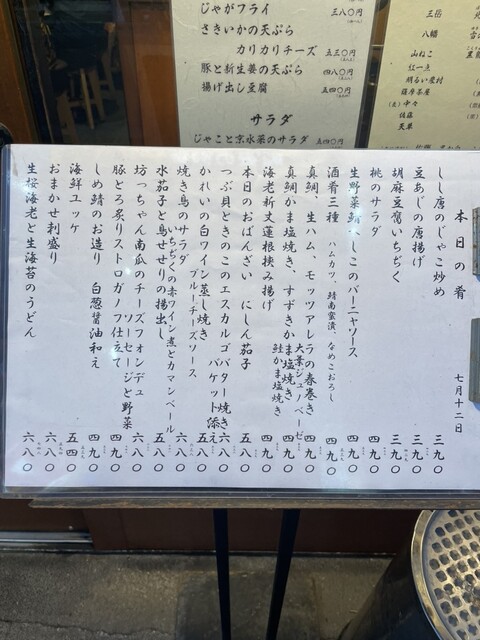 じゃがフライ 三八〇円
さきいかの天ぷら
カリカリチーズ 五三〇円
豚と新生姜の天ぷら 四八〇円
揚げ出し豆腐 五四〇円
サラダ
じゃこと京水菜のサラダ 五四〇円
三岳
八幡
山ねこ
紅一点
明るい農村
薩摩茶屋
中々
佐藤
天草
本日の肴 七月十二日
しし唐のじゃこ炒め 三九〇
豆あじの唐揚げ 三九〇
胡麻豆腐いちぢく 三九〇
桃のサラダ 四九〇
生野菜 しこのバーニャソース 四九〇
酒肴三種 ハムカツ、鯖南蛮漬、なめこおろし 四九〇
真鯛、生ハム、モッツアレラの春巻き 大葉ジェノベーゼ 四九〇
真鯛かま塩焼き、すずきかま塩焼き 鮭かま塩焼き 四九〇
海老新丈蓮根挟み揚げ 四九〇
本日のおばんざい にしん茄子 五八〇
つぶ貝ときのこのエスカルゴバター焼き バケット添え 六八〇
かれいの白ワイン蒸し焼き ブルーチーズソース 五八〇
焼き鳥のサラダ いちぢくの赤ワイン煮とカマンベール 六八〇
水茄子と鳥せせりの揚出し 五八〇
坊っちゃん南瓜のチーズフォンデュ ソーセージと野菜 六八〇
豚とろ炙りストロガノフ仕立て 四九〇
しめ鯖のお造り 白葱醤油和え 四九〇
海鮮ユッケ 五四〇
おまかせ刺盛り 六八〇
生桜海老と生海苔のうどん 六八〇